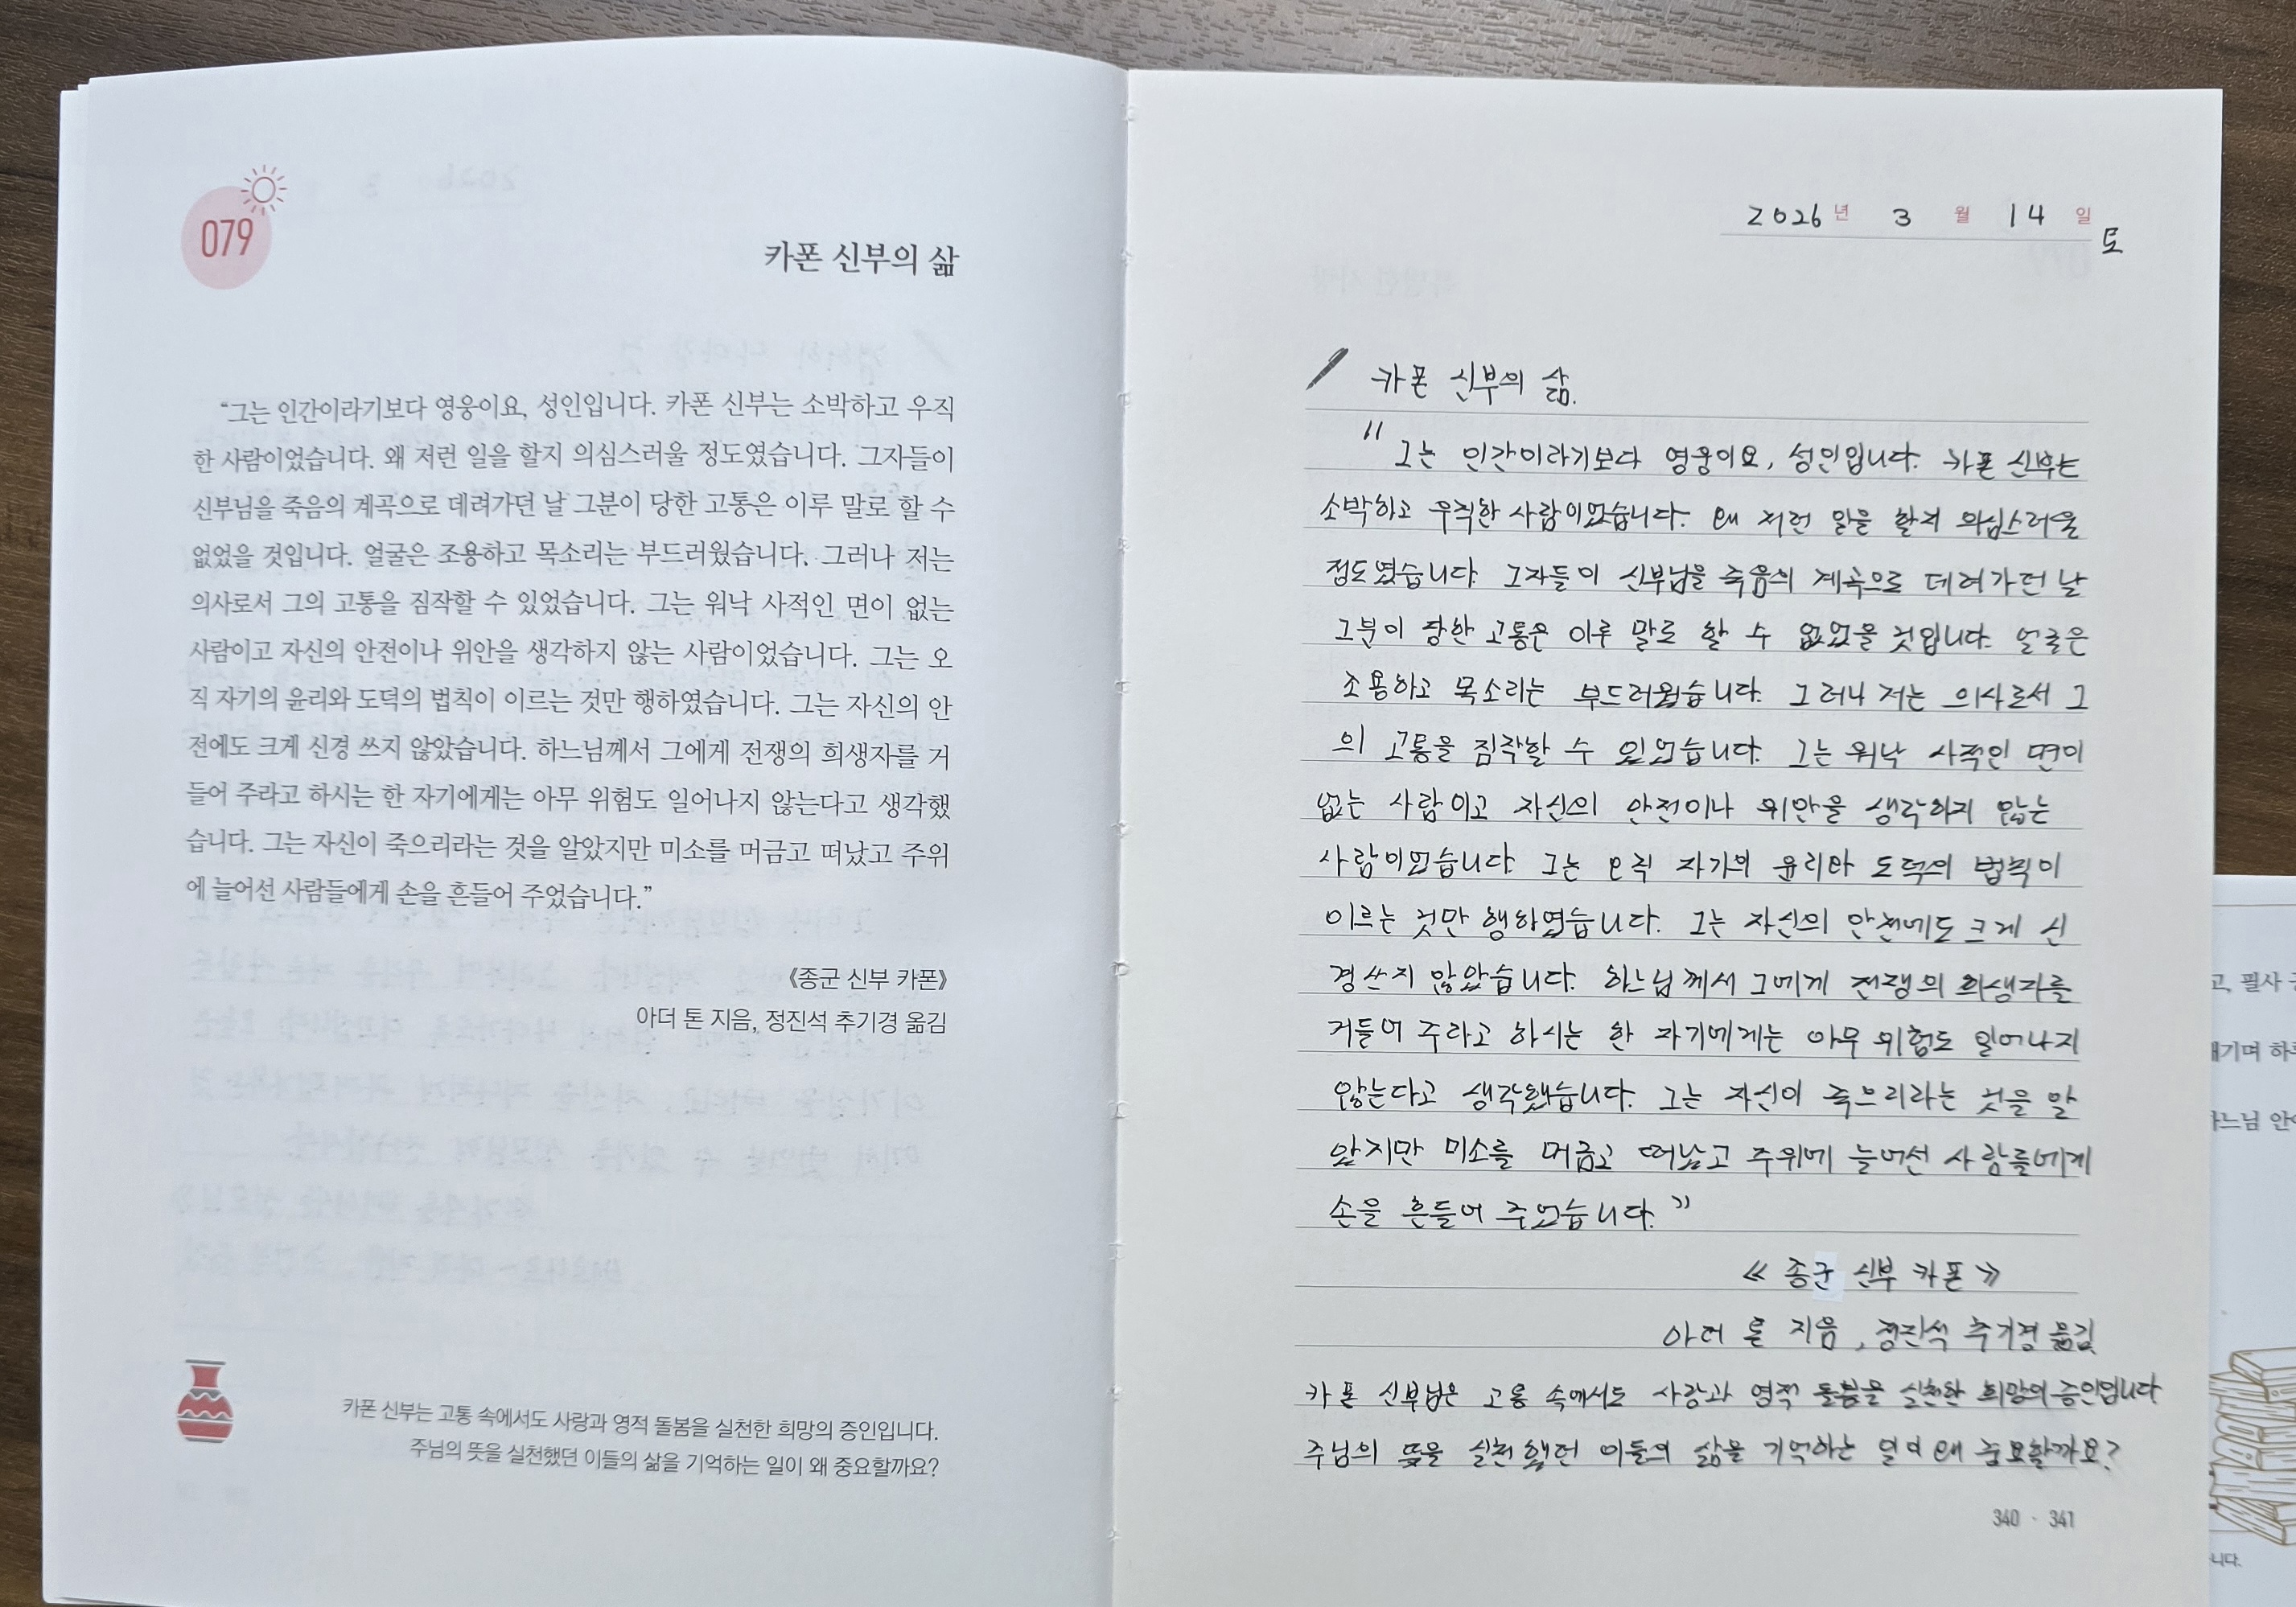 079
카폰 신부의 삶
“그는 인간이라기보다 영웅이요, 성인입니다. 카폰 신부는 소박하고 우직
한 사람이었습니다. 왜 저런 일을 할지 의심스러울 정도였습니다. 그자들이
신부님을 죽음의 계곡으로 데려가던 날 그분이 당한 고통은 이루 말로 할 수
없었을 것입니다. 얼굴은 조용하고 목소리는 부드러웠습니다. 그러나 저는
의사로서 그의 고통을 짐작할 수 있었습니다. 그는 워낙 사적인 면이 없는
사람이고 자신의 안전이나 위안을 생각하지 않는 사람이었습니다. 그는 오
직 자기의 윤리와 도덕의 법칙이 이르는 것만 행하였습니다. 그는 자신의 안
전에도 크게 신경 쓰지 않았습니다. 하느님께서 그에게 전쟁의 희생자를 거
들어 주라고 하시는 한 자기에게는 아무 위험도 일어나지 않는다고 생각했
습니다. 그는 자신이 죽으리라는 것을 알았지만 미소를 머금고 떠났고 주위
에 늘어선 사람들에게 손을 흔들어 주었습니다.”
《종군 신부 카폰》
아더 톤 지음, 정진석 추기경 옮김
카폰 신부는 고통 속에서도 사랑과 영적 돌봄을 실천한 희망의 증인입니다.
주님의 뜻을 실천했던 이들의 삶을 기억하는 일이 왜 중요할까요?
2026년 3월 14일
토
카폰 신부의 삶.
" 그는 인간이라기보다 영웅이요, 성인입니다. 카폰 신부는
소박하고 우직한 사람이었습니다. 왜 저런 일을 할지 의심스러울
정도였습니다. 그자들이 신부님을 죽음의 계곡으로 데려가던 날
그분이 당한 고통은 이루 말로 할 수 없었을 것입니다. 얼굴은
조용하고 목소리는 부드러웠습니다. 그러나 저는 의사로서 그
의 고통을 짐작할 수 있었습니다. 그는 워낙 사적인 면이
없는 사람이고 자신의 안전이나 위안을 생각하지 않는
사람이었습니다. 그는 오직 자기의 윤리와 도덕의 법칙이
이르는 것만 행하였습니다. 그는 자신의 안전에도 크게 신
경 쓰지 않았습니다. 하느님께서 그에게 전쟁의 희생자를
거들어 주라고 하시는 한 자기에게는 아무 위험도 일어나지
않는다고 생각했습니다. 그는 자신이 죽으리라는 것을 알
았지만 미소를 머금고 떠났고 주위에 늘어선 사람들에게
손을 흔들어 주었습니다."
《종군 신부 카폰》
아더 톤 지음, 정진석 추기경 옮김
카폰 신부님은 고통 속에서도 사랑과 영적 돌봄을 실천한 희망의 증인입니다
주님의 뜻을 실천했던 이들의 삶을 기억하는 일이 왜 중요할까요?
340 · 341
고, 필사
기며 하
느님 안
니다.